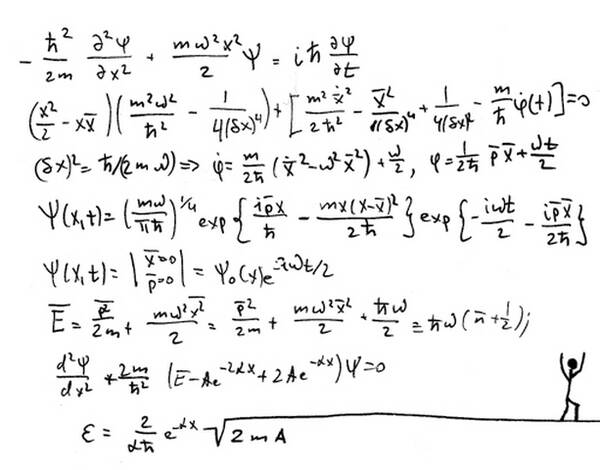 - ħ²/2m ∂²Ψ/∂x² + mω²x²/2 Ψ = iħ ∂Ψ/∂t
(x²/2 - xx̄)(m²ω²/ħ² - 1/4(δx)⁴) + [m²ẋ²/2ħ² - x̄²/4(δx)⁴ + 1/4(δx)² - m/ħ φ̇(t)] = 0
(δx)² = ħ/(2mω) ⇒ φ̇ = m/2ħ (ẋ² - ω²x̄²) + ω/2, φ = 1/2ħ p̄x̄ + ωt/2
Ψ(x,t) = (mω/πħ)^1/4 exp{ip̄x/ħ - mx(x-x̄)²/2ħ} exp{-iωt/2 - ip̄x̄/2ħ}
Ψ(x,t) = |x̄=0 p̄=0| = Ψ₀(x)e^-iωt/2
Ē = p̄²/2m + mω²x̄²/2 = p̄²/2m + mω²x̄²/2 + ħω/2 = ħω(n̄ + 1/2);
d²Ψ/dx² + 2m/ħ² (E - Ae^-2αx + 2Ae^-αx)Ψ = 0
ε = 2/αħ e^-αx √2mA